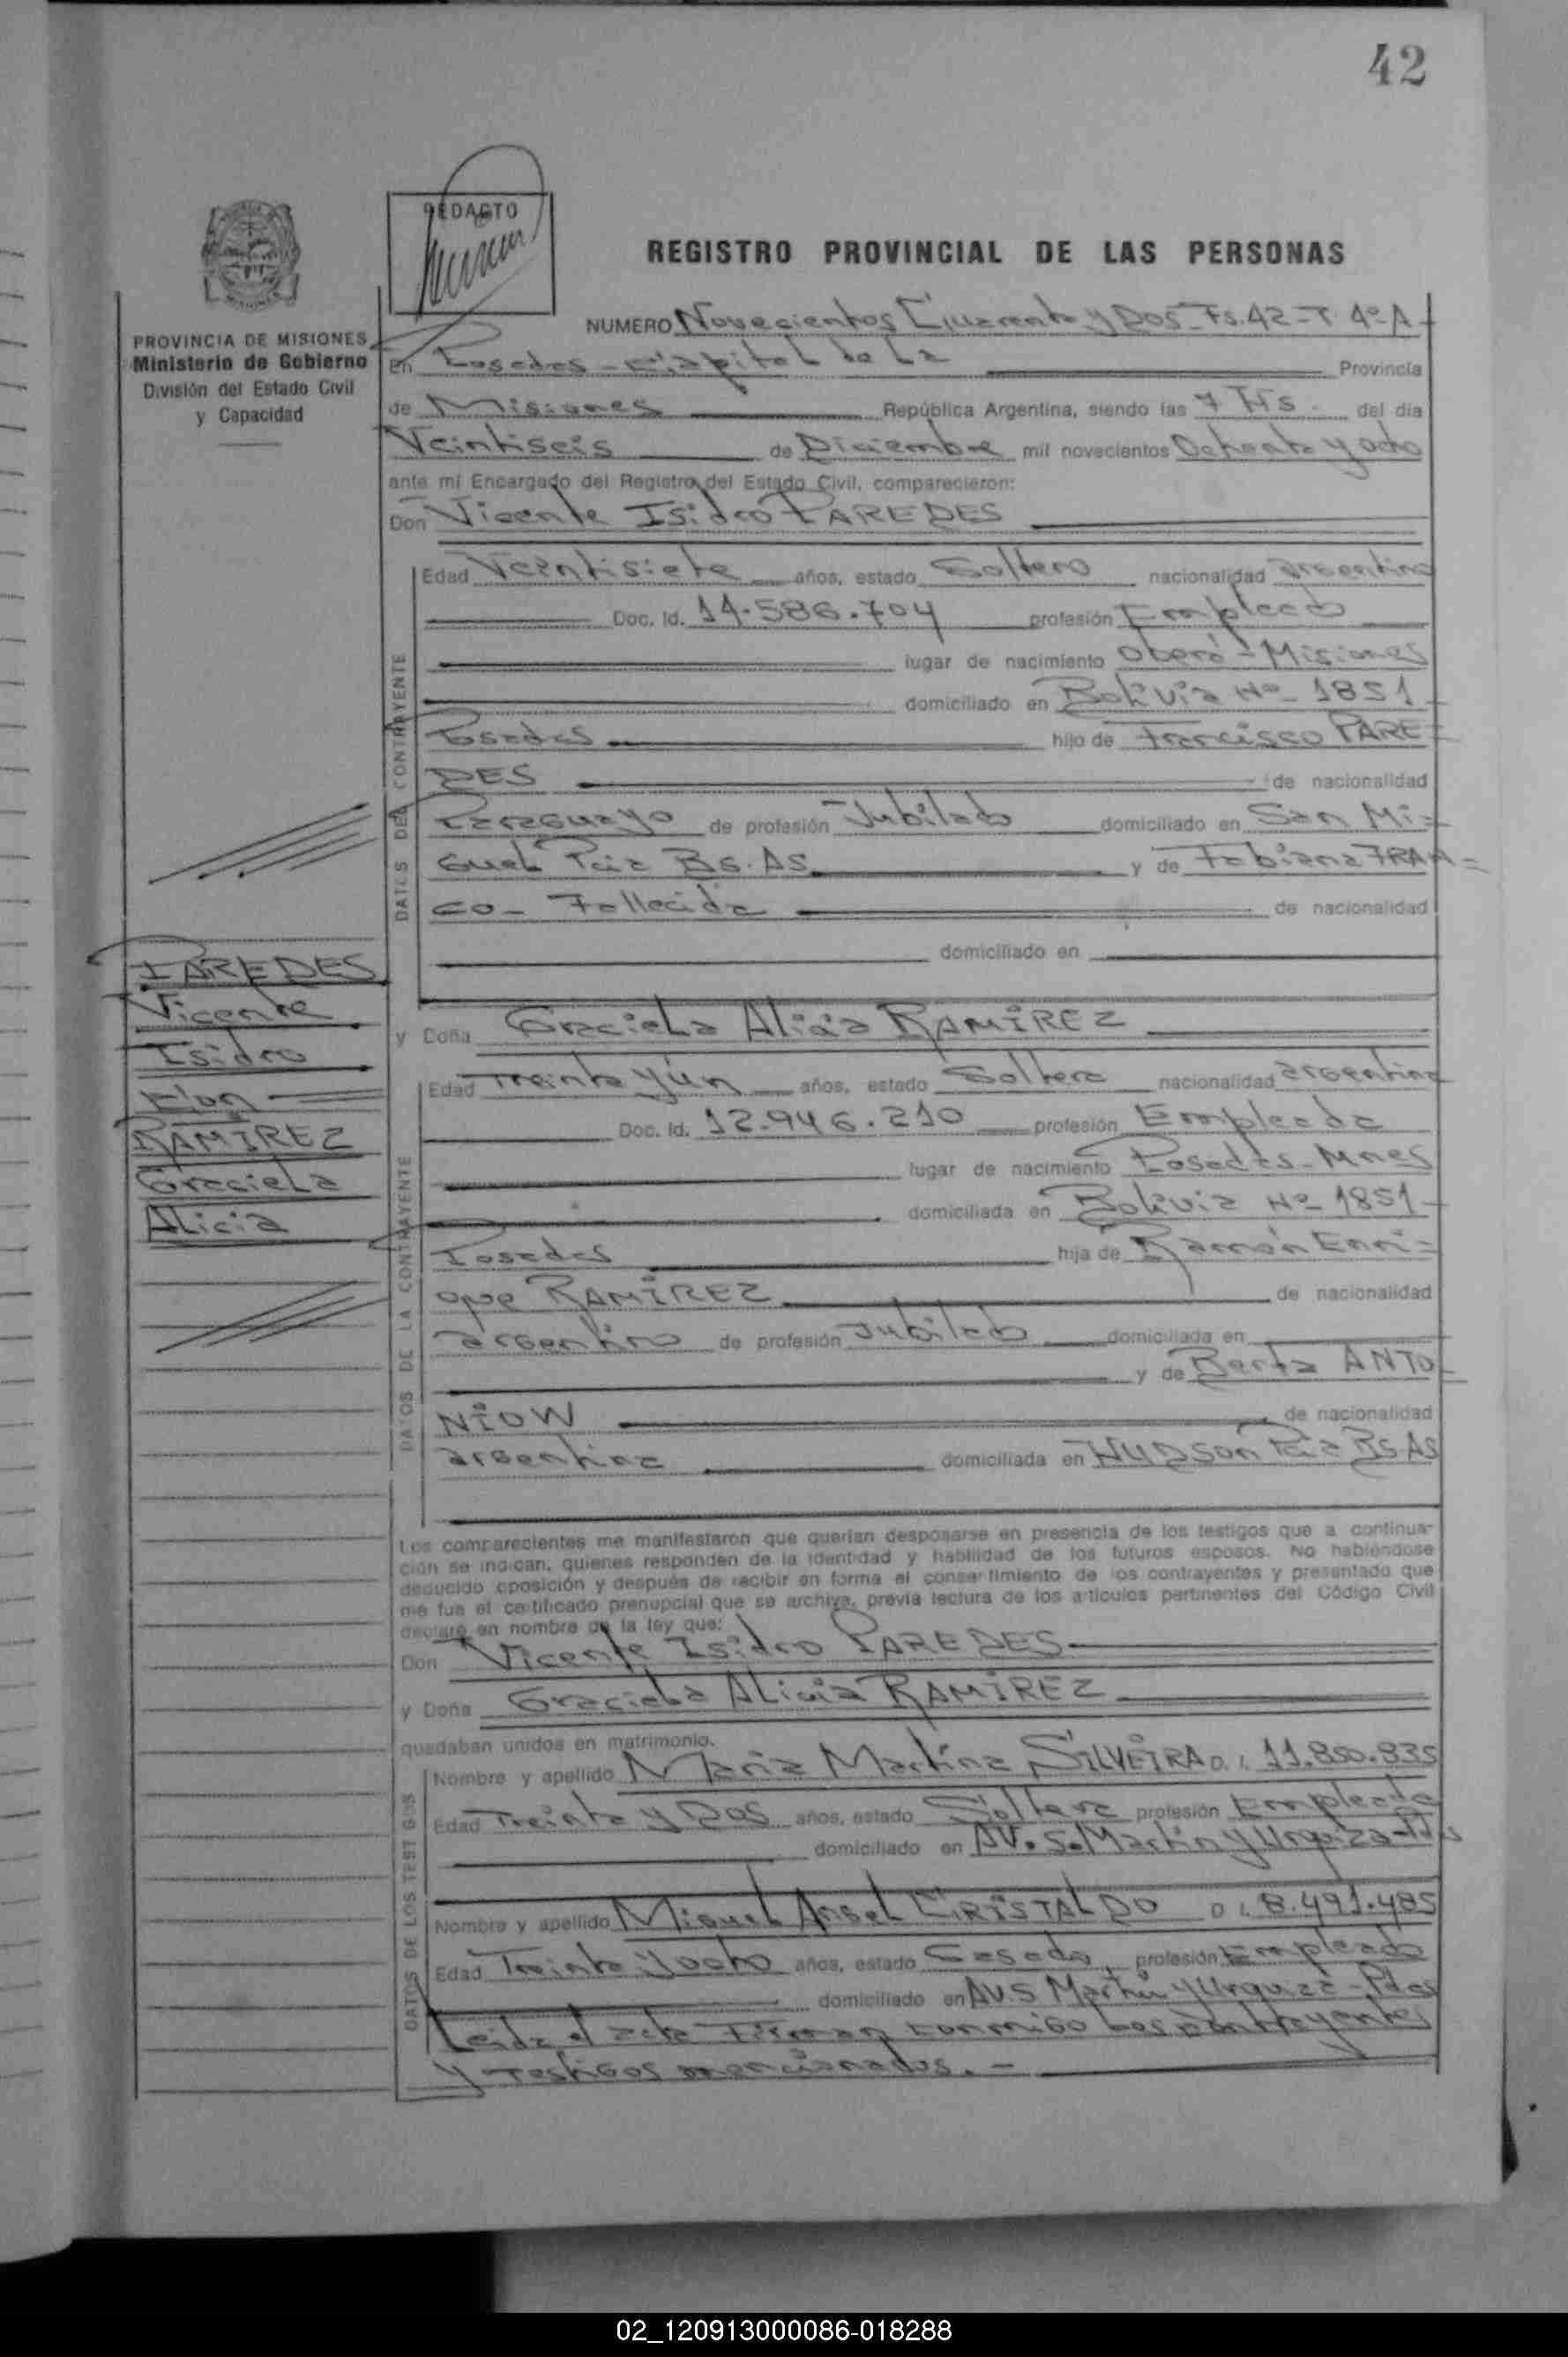 42
REDACTO
REGISTRO PROVINCIAL DE LAS PERSONAS
PROVINCIA DE MISIONES
Ministerio de Gobierno
División del Estado Civil
y Capacidad
NUMERO Novecientos Cuarenta y Dos - Fs. 42 - T. 4º - A -
En Posadas - Capital de La Provincia
de Misiones República Argentina, siendo las 7 Hs. del día
Veintiseis de Diciembre mil novecientos Ochenta y ocho
ante mi Encargado del Registro del Estado Civil, comparecieron:
Don Vicente Isidro PAREDES
DATOS DEL CONTRAYENTE
Edad Veintisiete años, estado Soltero nacionalidad argentino
Doc. Id. 14.586.704 profesión Empleado
lugar de nacimiento Oberá - Misiones
domiciliado en Bolivia Nº 1851 -
Posadas hijo de Francisco PARE=
DES de nacionalidad
Paraguayo de profesión Jubilado domiciliado en San Mi=
guel Pcia Bs. As. y de Fabiana FRAN=
CO - Fallecida de nacionalidad
domiciliado en
PAREDES
Vicente
Isidro
Con
RAMIREZ
Graciela
Alicia
y Doña Graciela Alicia RAMIREZ
DATOS DE LA CONTRAYENTE
Edad Treinta y ún años, estado Soltera nacionalidad argentina
Doc. Id. 12.946.210 profesión Empleada
lugar de nacimiento Posadas - Mnes
domiciliada en Bolivia Nº 1851 -
Posadas hija de Ramón Enri=
que RAMIREZ de nacionalidad
argentino de profesión Jubilado domiciliada en
y de Berta ANTO=
NIOW de nacionalidad
argentina domiciliada en HUDSON Pcia Bs. AS
Los comparecientes me manifestaron que querían desposarse en presencia de los testigos que a continua-
ción se indican, quienes responden de la identidad y habilidad de los futuros esposos. No habiéndose
deducido oposición y después de recibir en forma el consentimiento de los contrayentes y presentado que
me fue el certificado prenupcial que se archiva, previa lectura de los artículos pertinentes del Código Civil
declaré en nombre de la ley que:
Don Vicente Isidro PAREDES
y Doña Graciela Alicia RAMIREZ
quedaban unidos en matrimonio.
DATOS DE LOS TESTIGOS
Nombre y apellido Maria Martina SILVEIRA D. I. 11.850.835
Edad Treinta y Dos años, estado Soltera profesión Empleada
domiciliado en AV. S. Martin y Urquiza - Pdas
Nombre y apellido Miguel Angel CRISTALDO D I. 8.491.485
Edad Treinta y ocho años, estado Casado profesión Empleado
domiciliado en AV. S Martín y Urquiza - Pdas
Leida el acta Firman conmigo Los contrayentes
y Testigos mencionados. -
02_120913000086-018288